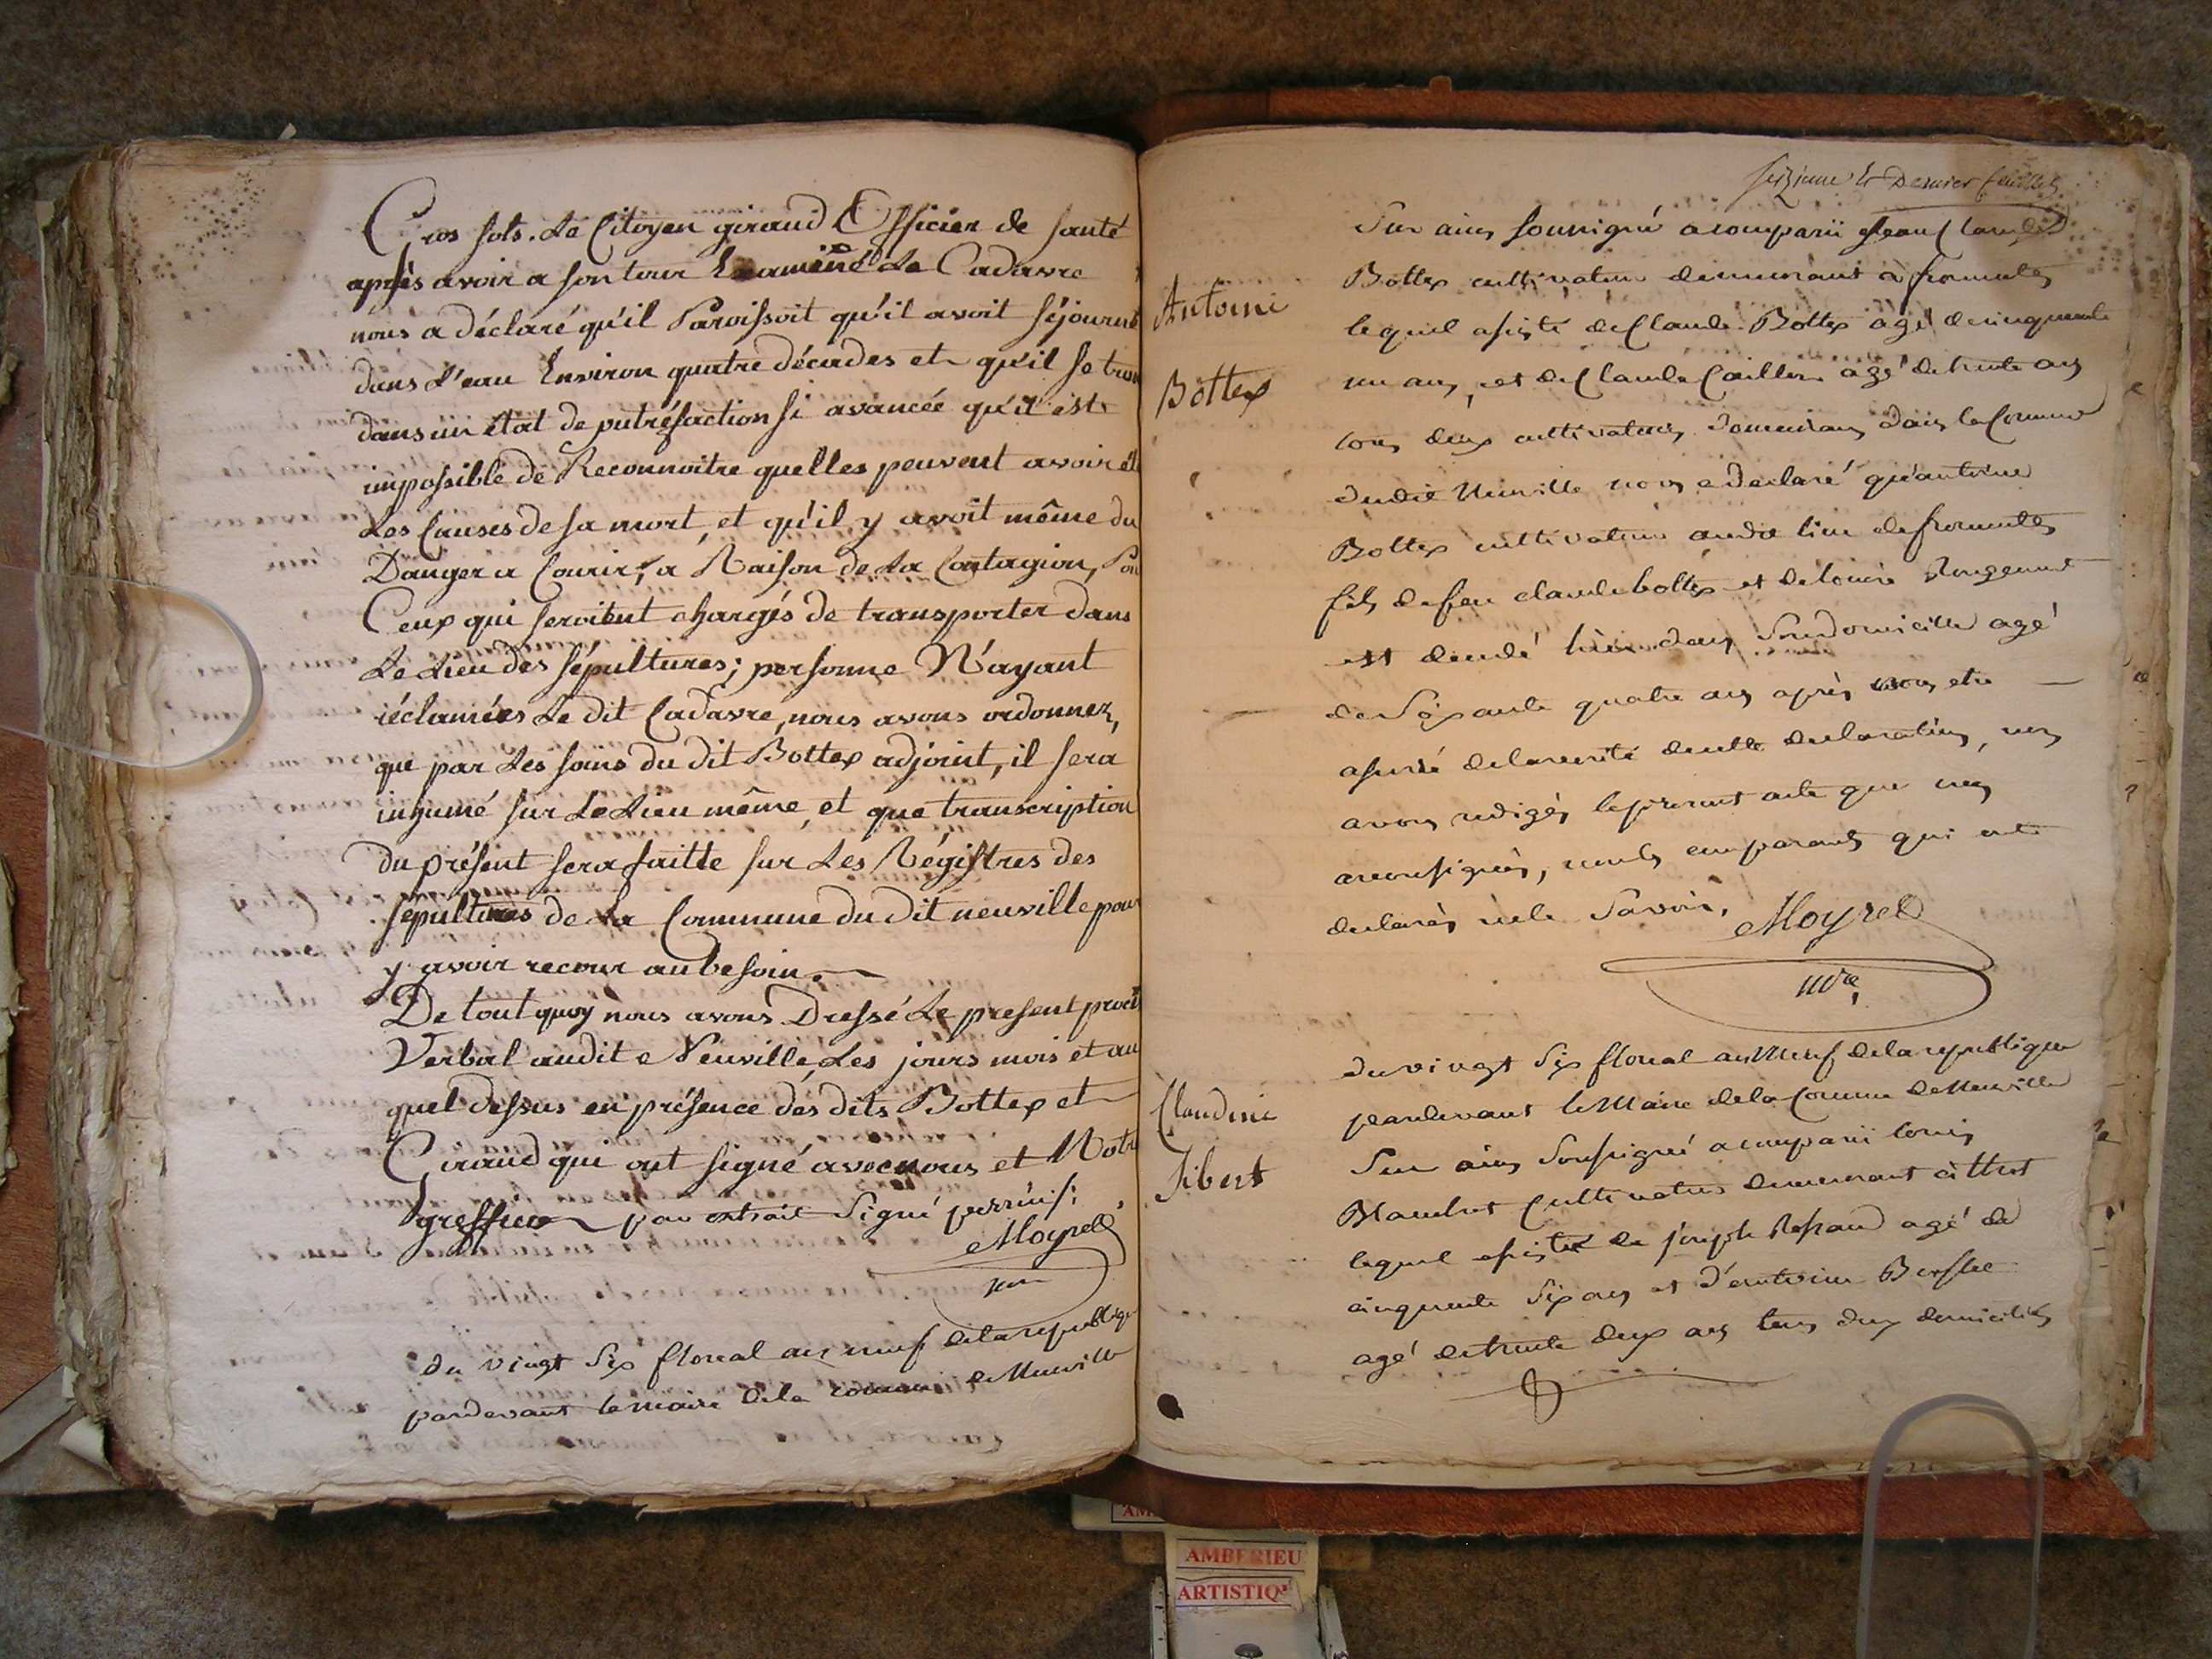 Gros sols. Le Citoyen giraud Officier de santé
après avoir a son tour Examiné Le Cadavre
nous a déclaré qu'il Paroissoit qu'il avoit séjourné
dans L'eau Environ quatre décades et qu'il se trou
dans un état de putréfaction si avancée qu'il est
impossible de Reconnoitre quelles peuvent avoir été
Les Causes de sa mort, et qu'il y avoit même du
Danger a Courir, a Raison de La Contagion, Pou
Ceux qui seroient chargés de transporter dans
Le Lieu des sépultures; personne N'ayant
réclamées Le dit Cadavre, nous avons ordonnez,
que par Les soins du dit Bottex adjoint, il sera
inhumé sur Le Lieu même, et que transcription
du présent sera faitte sur Les Régistres des
sepultures de La Commune du dit neuville pour
y avoir recour au besoin.
De tout quoy nous avons Dressé Le present procè
Verbal audit Neuville, Les jours mois et an
quel dessus en présence des dits Bottex et
Giraud qui ont signé avec nous et Notr
greffier par extrait Signé
Moyret
du vingt Six floreal an neuf de la republique
pardevant le maire de la commune de Neuville
seizieme et Dernier feuillet
Sur ains soussigné a comparû Jean Claude
Antoine
Bottex cultivateur demeurant à fromentes
lequel assisté de Claude Bottex agé de cinquante
Bottex
un ans, et de Claude agé de trente ans
tous deux cultivateurs domiciliés dans la Commune
dudit Neuville nous a declaré qu'antoine
Bottex cultivateur audit lieu de fromentes
fils de feu claude bottex et de louise Rougemont
est décédé hier dans Son domicille agé
de Soixante quatre ans après nous etre
assuré de la verité de cette declaration, nous
avons redigés le present acte que nous
avons signés, non les comparants qui ont
declarés ne le Savoir.
Moyret
mre
du vingt Six floreal an Neuf de la republique
pardevant le Maire de la Commune de Neuville
Claudine
Sur ains Soussigné a comparû louis
Jibert
Blanchet Cultivateur demeurant à
lequel assisté de joseph agé de
cinquante Six ans et d'antoine
agé de trente deux ans tous deux domiciliés
AMBERIEU
ARTISTIQ